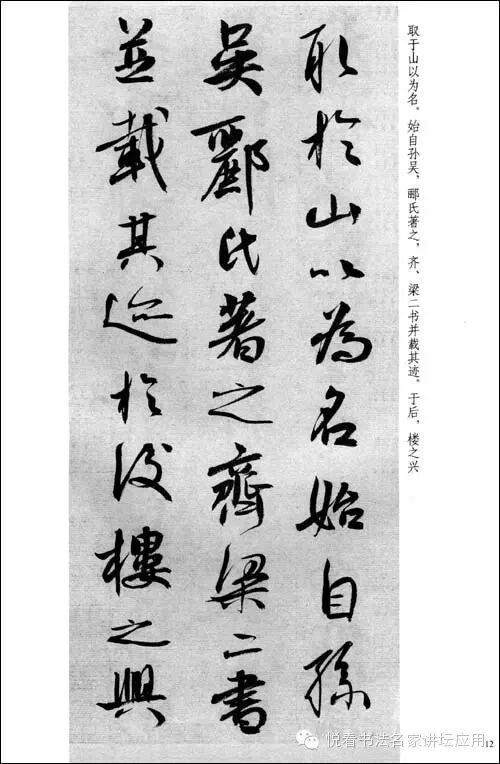 取于山以为名。始自孙吴，郦氏著之，齐、梁二书并载其迹。于后，楼之兴
取於山以為名始自孫
吳酈氏著之齊梁二書
並載其迹於後樓之興
悦看书法名家讲坛应用
12